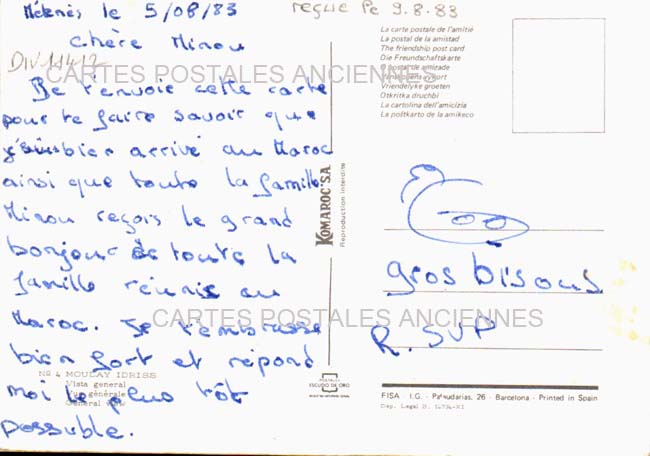 Méknès le 5/08/83
reçue le 9.8.83
chère Minou
DIV11412
CARTES POSTALES ANCIENNES
Je t'envoie cette carte
pour te faire savoir que
bien arrivé au Maroc
ainsi que toute la famille
Minou reçois le grand
bonjour de toute la
famille réunis au
Maroc. Je t'embrasse
bien fort et répond
moi le plus tôt
possuble.
CARTES POSTALES ANCIENNES
Nº 4 MOULAY IDRISS
Vista general
Vue générale
General view
KOMAROC S.A.
Reproduction interdite
POSTALES
ESCUDO DE ORO
La carte postale de l'amitié
La postal de la amistad
The friendship post card
Die Freundschaftskarte
O postal de amizade
Vriendelyke groeten
Otkritka druchbi
La cartolina dell'amicizia
La poŝtkarto de la amikeco
gros bisous
R. SVP
FISA - I.G. - Palaudarias, 26 - Barcelona - Printed in Spain
Dep. Legal B. 14734-XI